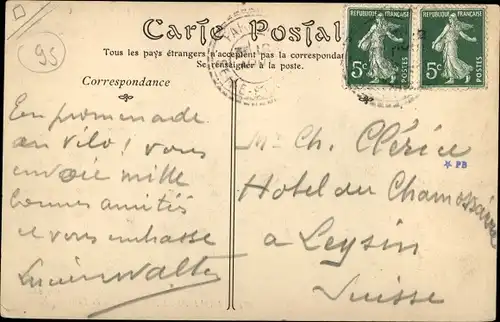 95
Carte Postale
Tous les pays étrangers n'acceptent pas la correspondance
Se renseigner à la poste.
REPUBLIQUE FRANÇAISE
5c
POSTES
REPUBLIQUE FRANÇAISE
5c
POSTES
Correspondance
En promenade
en vélo! Vous
envoie mille
bonnes amitiés
et vous embrasse
Lucien Walter
Mr Ch. Clérice
PB
Hotel du Chamossaire
a Leysin
Suisse